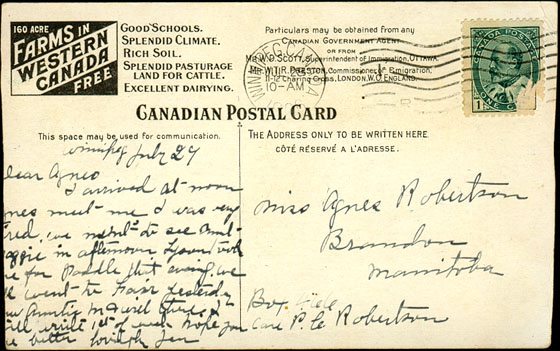 160 ACRE
FARMS IN
WESTERN
CANADA
FREE
GOOD SCHOOLS.
SPLENDID CLIMATE.
RICH SOIL.
SPLENDID PASTURAGE
LAND FOR CATTLE.
EXCELLENT DAIRYING.
Particulars may be obtained from any
CANADIAN GOVERNMENT AGENT
OR FROM
MR. W.D. SCOTT, Superintendent of Immigration, OTTAWA.
MR. W.T.R. PRESTON, Commissioner of Emigration,
11-12 Charing Cross, LONDON, W.C. ENGLAND.
WINNIPEG, CANADA
10-AM
CANADA POSTAGE
1
CANADIAN POSTAL CARD
This space may be used for communication.
THE ADDRESS ONLY TO BE WRITTEN HERE
CÔTÉ RÉSERVÉ A L'ADRESSE.
Winnipeg July 27
ear Agnes
I arrived at noon
nes meet me I was very
red, we went to see Aunt
aggie in afternoon
me for Paddle that evening, we
went to Fair yesterday
Auntie McGill there I
ill write 1st of week hope you
e better lovingly Jen
Miss Agnes Robertson
Brandon
Manitoba
Box
Care P. C. Robertson